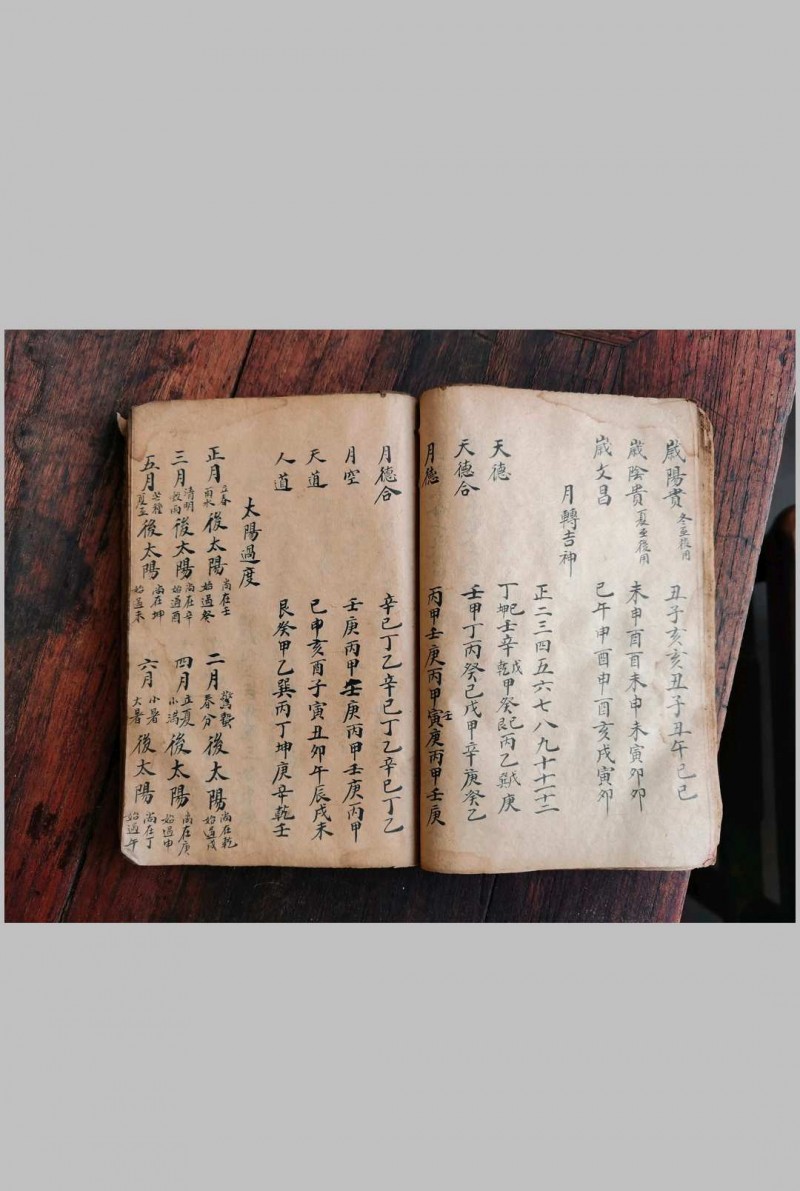 歲陽貴 冬至後用 丑子亥亥丑子丑午巳巳
歲陰貴 夏至後用 未申酉酉未申未寅卯卯
歲文昌 巳午申酉申酉亥戌寅卯
月轉吉神
正二三四五六七八九十十一十二
天德 丁坤己壬辛戊乾甲癸艮己丙乙巽庚
天德合 壬甲丁丙癸己戊甲辛庚癸乙
月德 丙甲壬庚丙甲寅壬庚丙甲壬庚
月德合 辛巳丁乙辛巳丁乙辛巳丁乙
月空 壬庚丙甲壬庚丙甲壬庚丙甲
天道 巳申亥酉子寅丑卯午辰戌未
人道 艮癸甲乙巽丙丁坤庚辛乾壬
太陽過度
正月 立春 雨水 後太陽 尚在壬 始過癸 二月 驚蟄 春分 後太陽 尚在乾 始過戌
三月 清明 穀雨 後太陽 尚在辛 始過酉 四月 立夏 小滿 後太陽 尚在庚 始過申
五月 芒種 夏至 後太陽 尚在坤 始過未 六月 小暑 大暑 後太陽 尚在丁 始過午